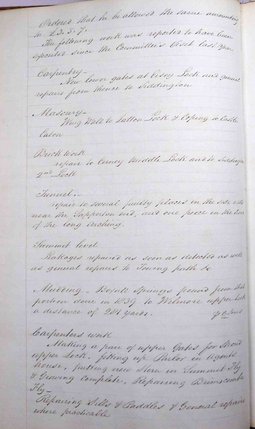 Ordered that he be allowed the same amounting
to £3.3.7.
The following work was reported to have been
reported since the Committee's Visit last year
Carpentry—
New lower gates at Cerney Lock and general
repairs from thence to Siddington
Masonry—
Wing Walls to Latton Lock & Coping
Brickwork
repair to Cerney Middle Lock and to Siddington
2nd Lock
Tunnel—
repair to several faulty places in the side walls
near the Sapperton end, and one piece in the
of the long arching.
Summit level
Leakages repaired as soon as detected as well
as general repairs to Towing path &c
Mudding— Boxwell Springs pound from that
portion done in 1839 to Wilmore upper Lock
a distance of 284 yards.
Carpenters work
Making a pair of upper Gates for
upper Lock, fitting up Parlor in Agents
house, putting new Floor in Summit Fly
& Growing complete, Repairing
Fly—
Repairing Sides & Paddles & General repairs
where practicable